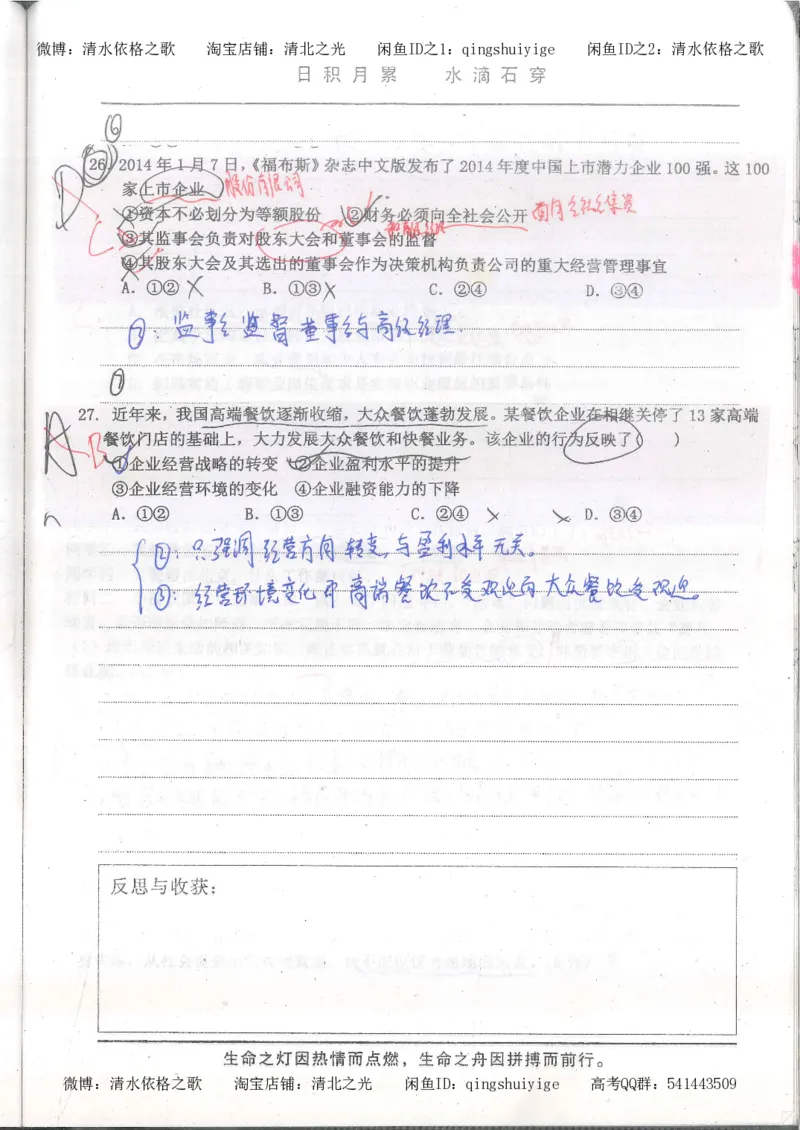 微博：清水依格之歌 淘宝店铺：清北之光 闲鱼ID之1：qingshuiyige 闲鱼ID之2：清水依格之歌
日积月累 水滴石穿
⑥
26. 2014年1月7日，《福布斯》杂志中文版发布了2014年度中国上市潜力企业100强。这100
家上市企业 股份有限公司
D
①资本不必划分为等额股份 ②财务必须向全社会公开 面向全社会集资
C ③其监事会负责对股东大会和董事会的监督
④其股东大会及其选出的董事会作为决策机构负责公司的重大经营管理事宜
A. ①② B. ①③ C. ②④ D. ③④
③：监事会监督董事会与高级经理.
⑦
27. 近年来，我国高端餐饮逐渐收缩，大众餐饮蓬勃发展。某餐饮企业在相继关停了13家高端
餐饮门店的基础上，大力发展大众餐饮和快餐业务。该企业的行为反映了( )
A B
①企业经营战略的转变 ②企业盈利水平的提升
③企业经营环境的变化 ④企业融资能力的下降
A. ①② B. ①③ C. ②④ D. ③④
②：只强调经营方向转变,与盈利水平无关。
③：经营环境变化即高端餐饮不受欢迎而大众餐饮受欢迎。
反思与收获：
生命之灯因热情而点燃，生命之舟因拼搏而前行。
微博：清水依格之歌 淘宝店铺：清北之光 闲鱼ID：qingshuiyige 高考QQ群：541443509